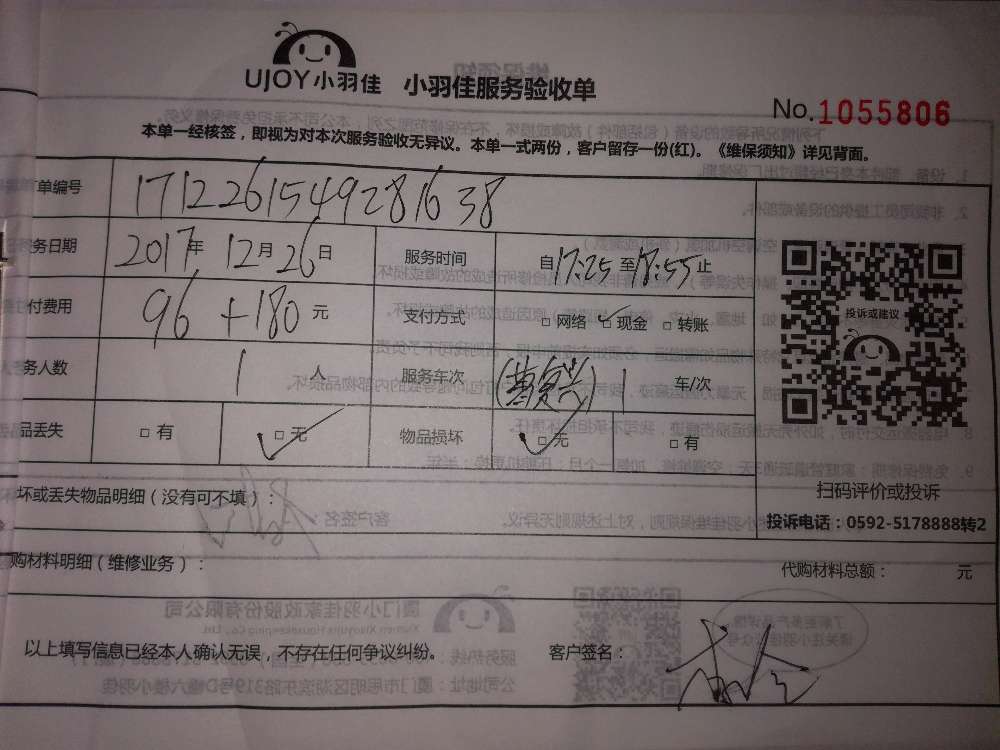 UJOY小羽佳 小羽佳服务验收单
No.1055806
本单一经核签，即视为对本次服务验收无异议。本单一式两份，客户留存一份(红)。《维保须知》详见背面。
订单编号 1712261549281638
务日期 2017年 12月26日 服务时间 自17:25至18:55止
付费用 96+180 元 支付方式 □网络 ☑现金 □转账
务人数 1 人 服务车次 1 车/次
品丢失 □有 ☑无 物品损坏 ☑无 □有
投诉或建议
扫码评价或投诉
投诉电话：0592-5178888转2
坏或丢失物品明细（没有可不填）：
购材料明细（维修业务）：
代购材料总额： 元
以上填写信息已经本人确认无误，不存在任何争议纠纷。 客户签名：